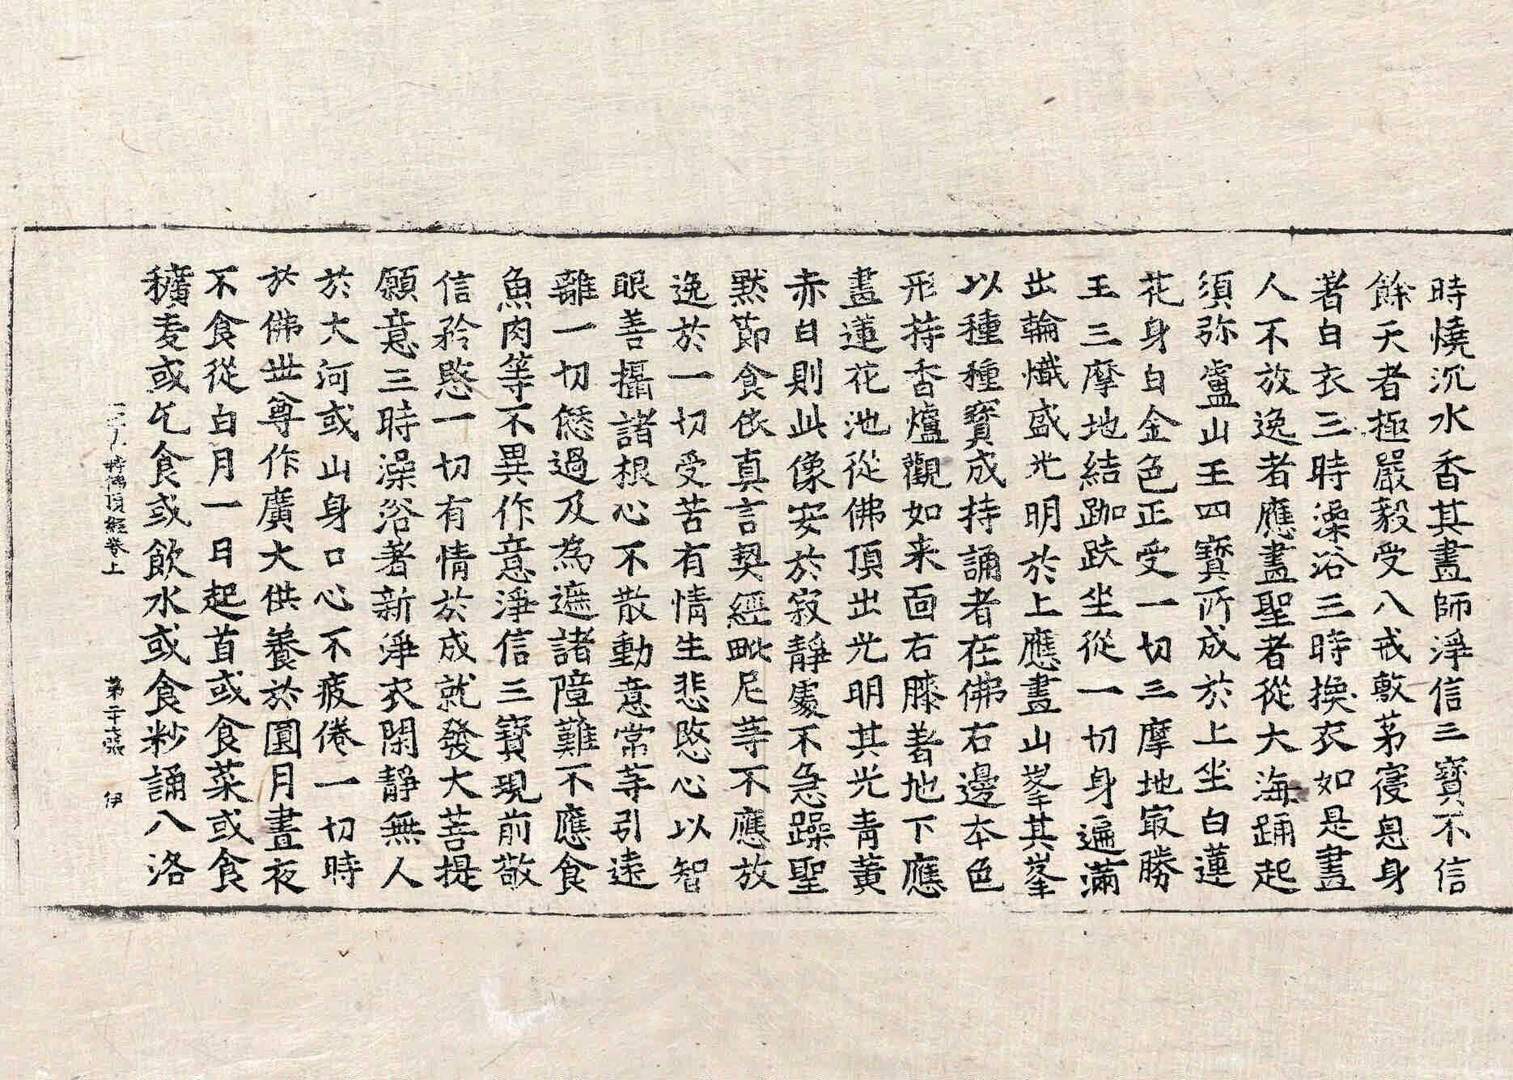 時燒沉水香其畫師淨信三寶不信
餘天者極嚴毅受八戒敷茅寑息身
著白衣三時澡浴三時換衣如是畫
人不放逸者應畫聖者從大海踊起
須弥盧山王四寶所成於上坐白蓮
花身白金色正受一切三摩地冣勝
王三摩地結跏趺坐從一切身遍滿
出輪熾盛光明於上應畫山峯其峯
以種種寶成持誦者在佛右邊本色
形持香爐觀如来面右膝著地下應
畫蓮花池從佛頂出光明其光青黃
赤白則此像安於寂靜處不急躁聖
黙節食依真言契經毗尼等不應放
逸於一切受苦有情生悲愍心以智
眼善攝諸根心不散動意常等引遠
離一切愆過及為遮諸障難不應食
魚肉等不異作意淨信三寶現前敬
信矜愍一切有情於成就發大菩提
願意三時澡浴著新淨衣閑靜無人
於大河或山身口心不疲倦一切時
於佛世尊作廣大供養於園月晝夜
不食從白月一日起首或食菜或食
穬麦或乞食或飲水或食粆誦八洛
特佛頂經卷上 第二十七張 伊